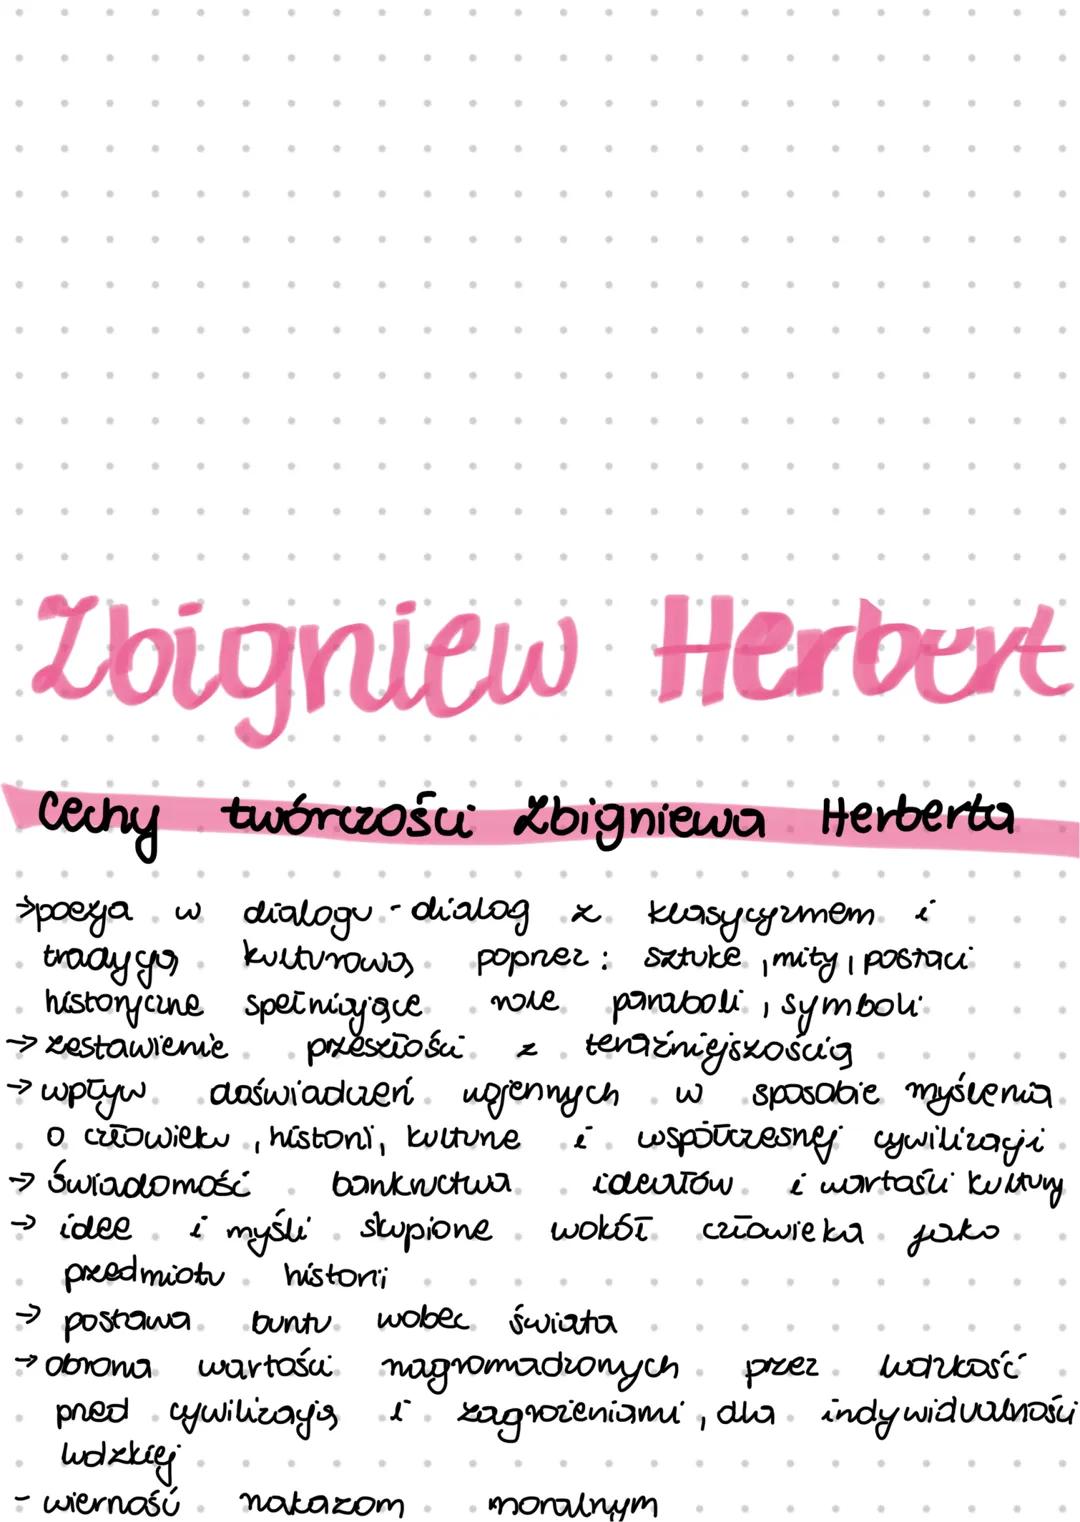 Zbigniew Herbert
Cechy twórczości Zbigniewa Herberta
→poezja w dialogu - dialog z klasycyzmem i
tradycją kulturową poprzez: sztukę, mity, postaci
historyczne spełniające role paraboli, symboli
→ zestawienie przeszłości z teraźniejszością
→ wpływ doświadczeń wojennych w sposobie myślenia
o człowieku, historii, kulturze i współczesnej cywilizacji
→ Świadomość bankructwa ideałów i wartości kultury
→ idee i myśli skupione wokół człowieka jako
przedmiotu historii
→ postawa buntu wobec świata
→ obrona wartości nagromadzonych przez ludzkość
przed cywilizacją i zagrożeniami, dla indywidualności
ludzkiej
- wierność nakazom moralnym